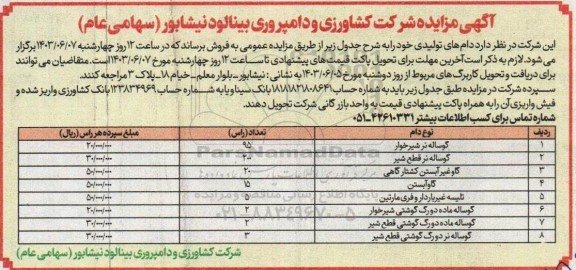 آگهی مزایده شرکت کشاورزی و دامپروری بینالود نیشابور (سهامی عام)
این شرکت در نظر دارد دام های تولیدی خود را به شرح جدول زیر از طریق مزایده عمومی به فروش برساند که در ساعت ۱۲ روز چهارشنبه ۱۴۰۳/۰۶/۰۷ برگزار
می شود. لازم به ذکر است آخرین مهلت برای تحویل پاکت قیمت های پیشنهادی تا ساعت ۱۲ روز چهارشنبه مورخ ۱۴۰۳/۰۶/۰۷ است. متقاضیان می توانند
برای دریافت و تحویل کاربرگ های مربوط از روز دوشنبه مورخ ۱۴۰۳/۰۶/۰۵ به نشانی: نیشابور - بلوار معلم - خیام ۱۸ - پلاک ۳ مراجعه کنند.
سپرده شرکت در مزایده طبق جدول زیر باید به شماره حساب ۱۸۱۸۱۸۲۱۸۰۸۶۴۱ بانک سینا و یا به شماره حساب ۱۲۳۸۳۴۹۶۹ بانک کشاورزی واریز شده و
فیش واریزی آن را به همراه پاکت پیشنهادی قیمت به واحد بازرگانی شرکت تحویل دهند.
شماره تماس برای کسب اطلاعات بیشتر ۴۲۶۱۰۳۳۱-۰۵۱
ردیف نوع دام تعداد (راس) مبلغ سپرده هر راس (ریال)
۱ گوساله نر شیرخوار ۹۵ ۲۰/۰۰۰/۰۰۰
۲ گوساله نر قطع شیر ۳۰/۰۰۰/۰۰۰
۳ گاو غیر آبستن کشتار گاهی ۲۰ ۵۰/۰۰۰/۰۰۰
۴ گاو آبستن ۱۵ ۵۰/۰۰۰/۰۰۰
۵ تلیسه غیر باردار و فری مارتین ۵ ۵۰/۰۰۰/۰۰۰
۶ گوساله ماده دورگ گوشتی شیرخوار ۲ ۲۰/۰۰۰/۰۰۰
۷ گوساله ماده دورگ گوشتی قطع شیر ۳ ۳۰/۰۰۰/۰۰۰
۸ گوساله نر دورگ گوشتی قطع شیر ۳ ۳۰/۰۰۰/۰۰۰
شرکت کشاورزی و دامپروری بینالود نیشابور (سهامی عام)
ParsNamadData
پایگاه اطلاع رسانی مناقصه و مزایده
۰۲۱-۸۸۳۴۹۶۷۰-۵